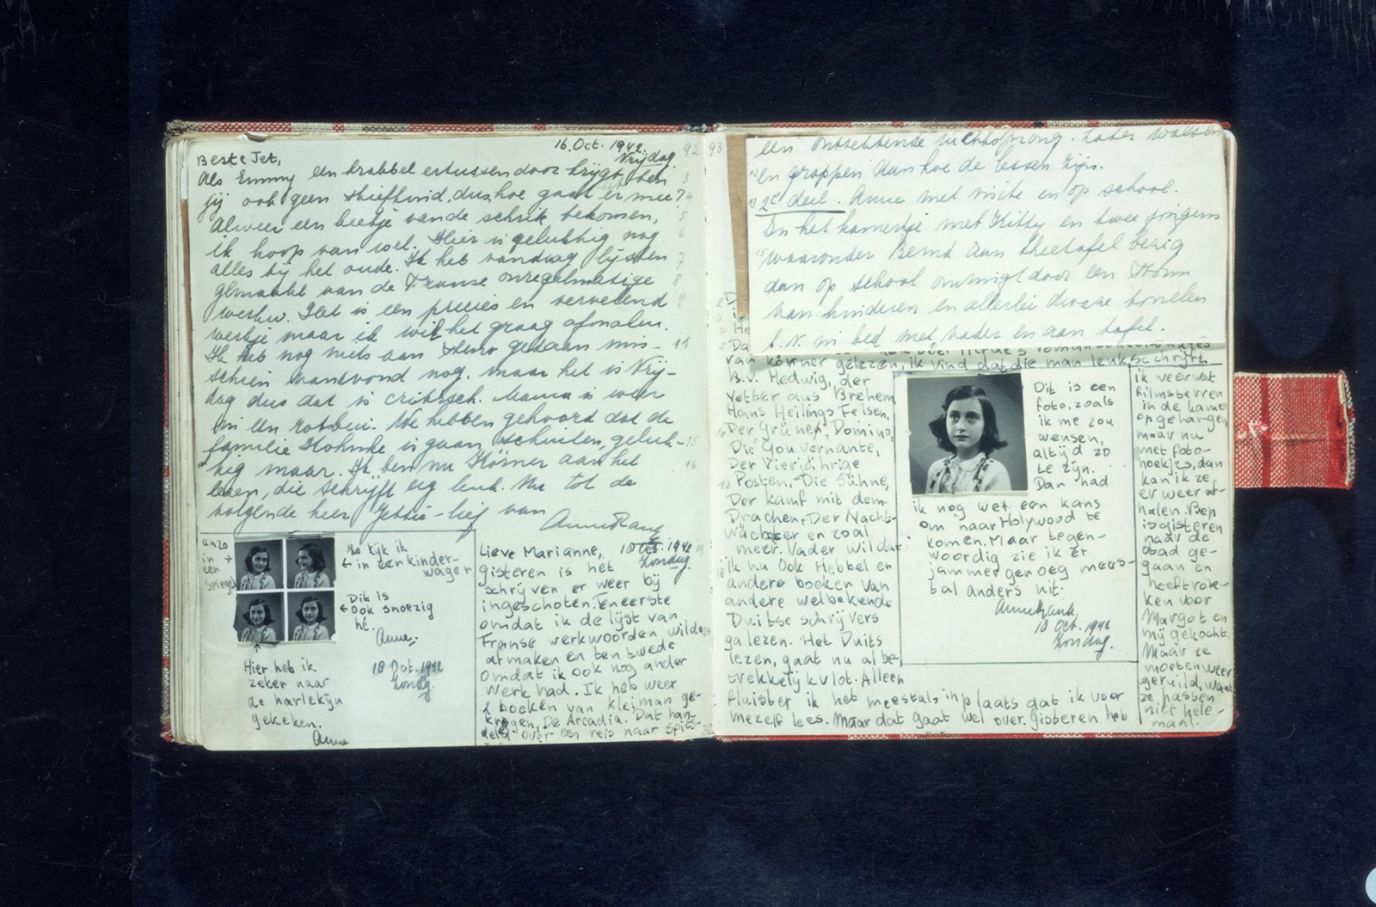 16. Oct. 1942.
Vrijdag
92
Beste Jet,
Als Emmy een krabbel ertussendoor krijgt, ben
jij ook geen stiefkind, dus, hoe gaat er mee?
Alweer een beetje van de schrik bekomen,
ik hoop van wel. Hier is gelukkig nog
alles bij het oude. Ik heb vandaag lijsten
gemaakt van de Franse onregelmatige
werkw. Het is een precies en vervelend
werkje maar ik wil het graag afmaken.
Ik heb nog niets aan steno gedaan mis-
schien vanavond nog, maar het is Vrij-
dag dus dat is critisch. Mama is weer
in een rotbui. We hebben gehoord dat de
familie is gaan schuilen, geluk-
kig maar. Ik ben nu Körner aan het
lezen, die schrijft erg leuk. Nu tot de
volgende keer Jettie-lief van
Anne Frank
enzo
in
een
spiegel
Zo kijk ik
in een kinder-
wagen
Dit is
ook snoezig
hè.
Anne.
18 Oct. 1942
Zondag.
Hier heb ik
zeker naar
de harlekijn
gekeken.
Anne
Lieve Marianne,
18 Oct. 1942
Zondag.
gisteren is het
schrijven er weer bij
ingeschoten. Ten eerste
omdat ik de lijst van
Franse werkwoorden wilde
afmaken en ten twede
omdat ik ook nog ander
werk had. Ik heb weer
2 boeken van kleiman ge-
kregen, De Arcadia. Dat han-
delt over een reis naar Spits-
93
een ontzettende luchtsprong. Later walsen
en grappen dan hoe de lessen zijn.
2e deel. Anne met visite en op school.
In het kamertje met Kitty en twee jongens
waaronder Bernd aan theetafel bezig
dan op school omringd door een stroom
van kinderen en allerlei dwaze tonelen
b.v. in bed met vader en aan tafel.
van körner gelezen, ik vind dat die man leuk schrijft
B.v. Hedwig, der
Vetter aus Bremen
Hans Heilings Felsen,
Der Grünen, Domino,
Die Gouvernante,
Der Vierjährige
Posten, Die Sühne,
Der kamf mit dem
Drachen, Der Nacht-
wächter en zoal
meer. Vader wil dat
ik nu ook Hebbel en
andere boeken van
andere welbekende
Duitse schrijvers
ga lezen. Het Duits
lezen, gaat nu al be-
trekkelijk vlot. Alleen
fluister ik het meestal in plaats dat ik voor
mezelf lees. Maar dat gaat wel over. Gisteren heb
Dit is een
foto, zoals
ik me zou
wensen,
altijd zo
te zijn.
Dan had
ik nog wel een kans
om naar Holywood te
komen. Maar tegen-
woordig zie ik er
jammer genoeg mees-
tal anders uit.
Anne Frank.
18 Oct. 1942
Zondag.
ik weer wat
filmsterren
in de kamer
opgehangen
maar nu
met foto-
hoekjes, dan
kan ik ze
er weer af-
halen. Bep
is gisteren
naar de
stad ge-
gaan en
heeft rok-
ken voor
Margot en
mij gekocht.
Maar ze
moeten weer
geruild, want
ze passen
niet hele-
maal.